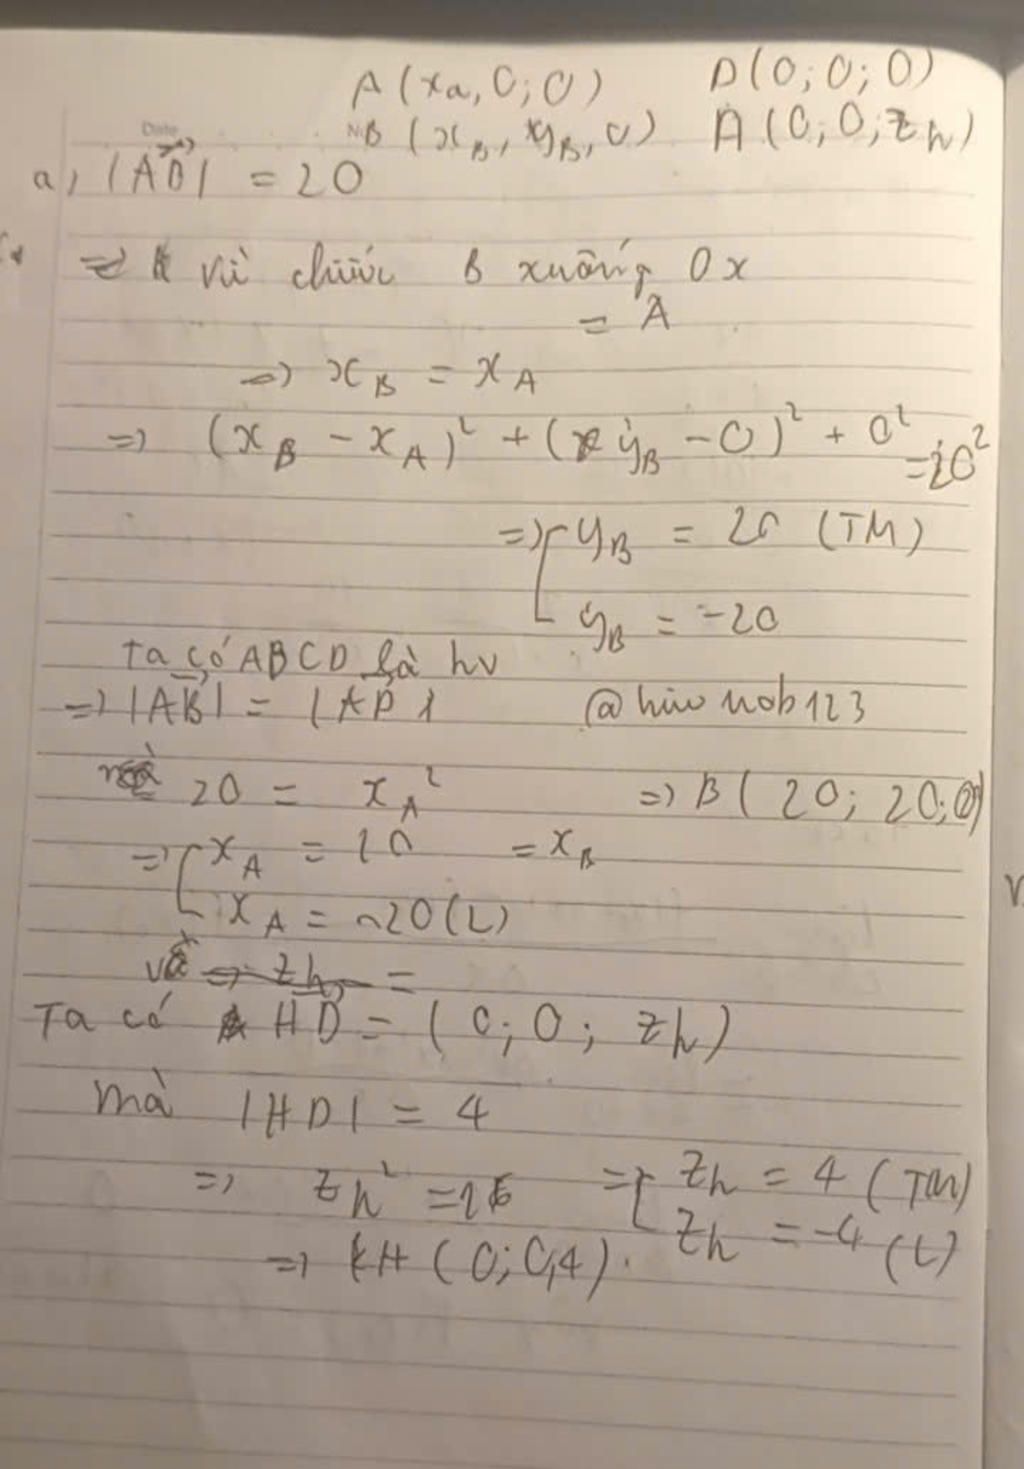 A (xₐ, 0; 0) D(0; 0; 0)
Date No B (x_B, y_B, 0) A (0, 0; z_h)
a) |AB| = 20
=> vì chiếu B xuống Ox
= A
=> x_B = x_A
=> (x_B - x_A)² + (y_B - 0)² + 0² = 20²
=> [ y_B = 20 (TM)
y_B = -20
Ta có ABCD là hv
=> |AB| = |AD| @hiw nob123
20 = x_A² => B( 20; 20; 0)
=> [ x_A = 20 = x_B
x_A = -20 (L)
=> z_h =
Ta có HD = ( 0; 0; z_h)
mà |HD| = 4
=> z_h² = 16 => [ z_h = 4 (TM)
z_h = -4 (L)
=> H ( 0; 0,4).